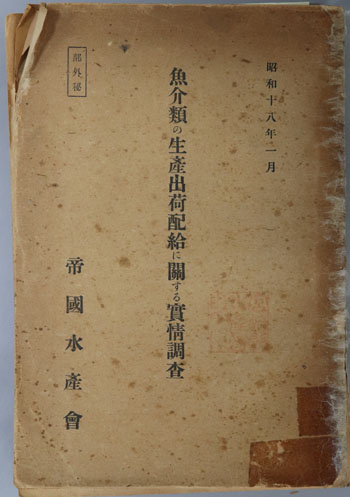 昭和十八年一月
魚介類の生産出荷配給に關する實情調査
部外秘
帝國水産會